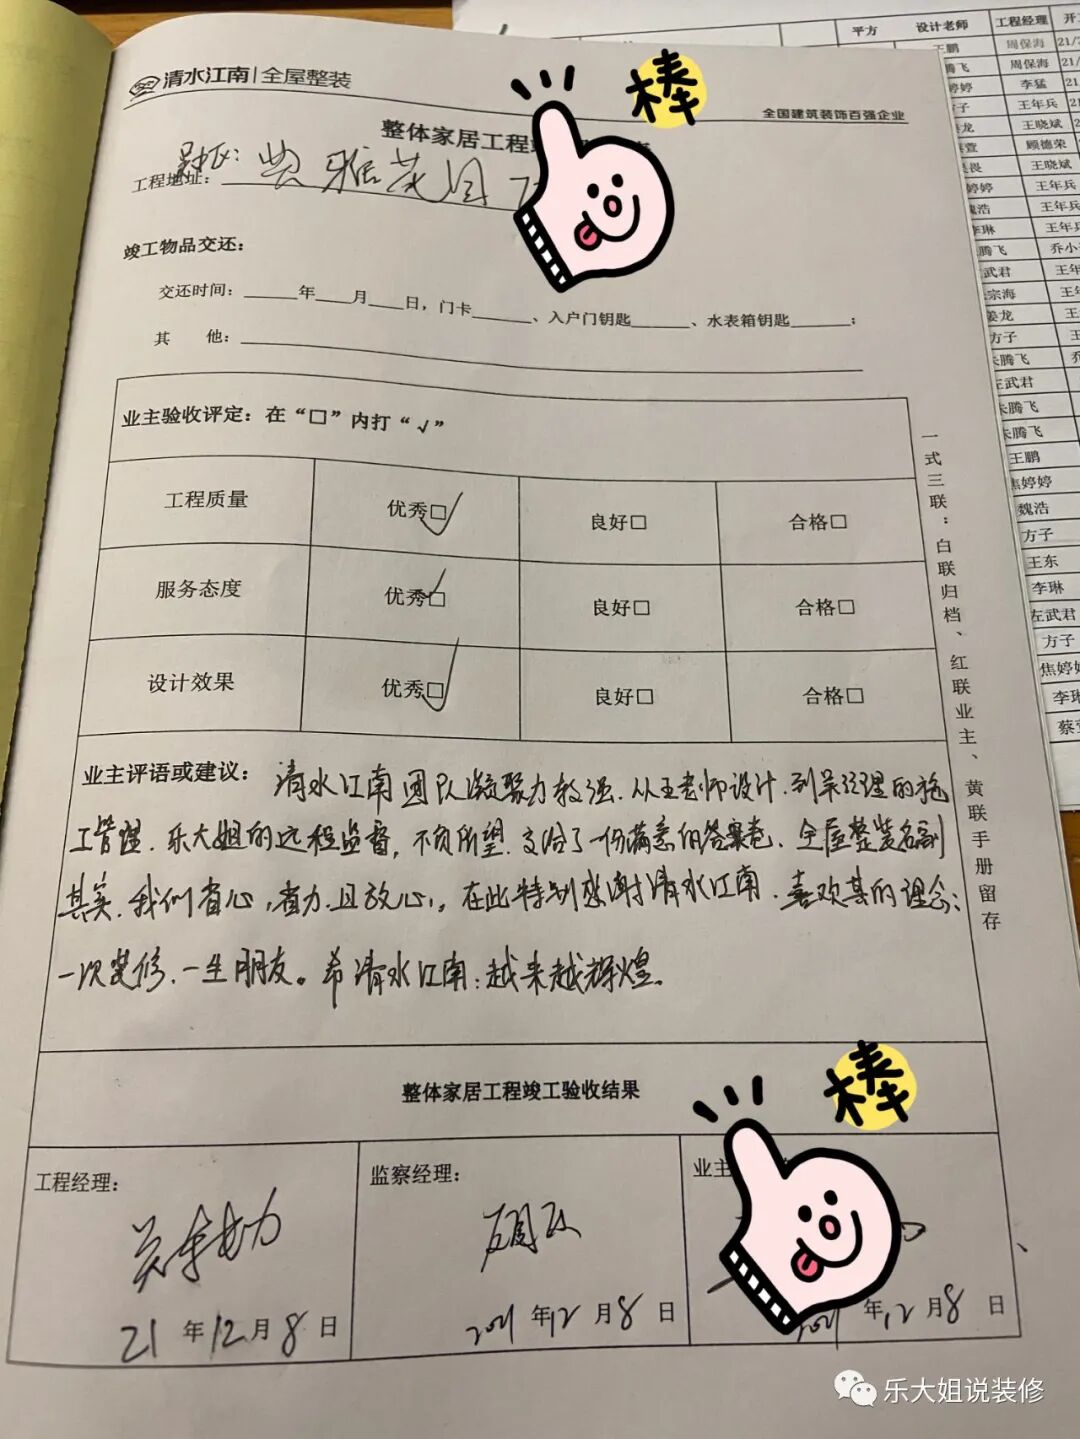 清水江南 | 全屋整装
全国建筑装饰百强企业
棒
整体家居工程
工程地址：典雅花园
竣工物品交还：
交还时间：____年____月____日，门卡____、入户门钥匙____、水表箱钥匙____；
其 他：
业主验收评定：在“□”内打“√”
工程质量 优秀□√ 良好□ 合格□
服务态度 优秀□√ 良好□ 合格□
设计效果 优秀□√ 良好□ 合格□
业主评语或建议：清水江南团队凝聚力较强．从王老师设计．到吴经理的施
工管理．乐大姐的远程监督，不负所望．交给了一份满意的答案卷、全屋整装名副
其实．我们省心，省力．且放心，。在此特别感谢清水江南．喜欢其的理念：
一次装修．一生朋友。希清水江南：越来越辉煌。
一式三联：白联归档、红联业主、黄联手册留存
整体家居工程竣工验收结果
棒
工程经理：
21年12月8日
监察经理：
2021年12月8日
业主
2021年12月8日
平方 设计老师 工程经理 开
王鹏 周保海 21/
腾飞 周保海 21/
婷婷 李猛 21
方子 王年兵
姜龙 王晓斌
顾德荣
王晓斌
婷婷 王年兵
魏浩 王年兵
李琳 王年兵
腾飞 乔小
武君 王年
宗海 王年
姜龙 王
方子 王
朱腾飞 乔
左武君
朱腾飞
朱腾飞
王鹏
焦婷婷
魏浩
方子
王东
李琳
左武君
方子
焦婷婷
李琳
蔡萱
乐大姐说装修